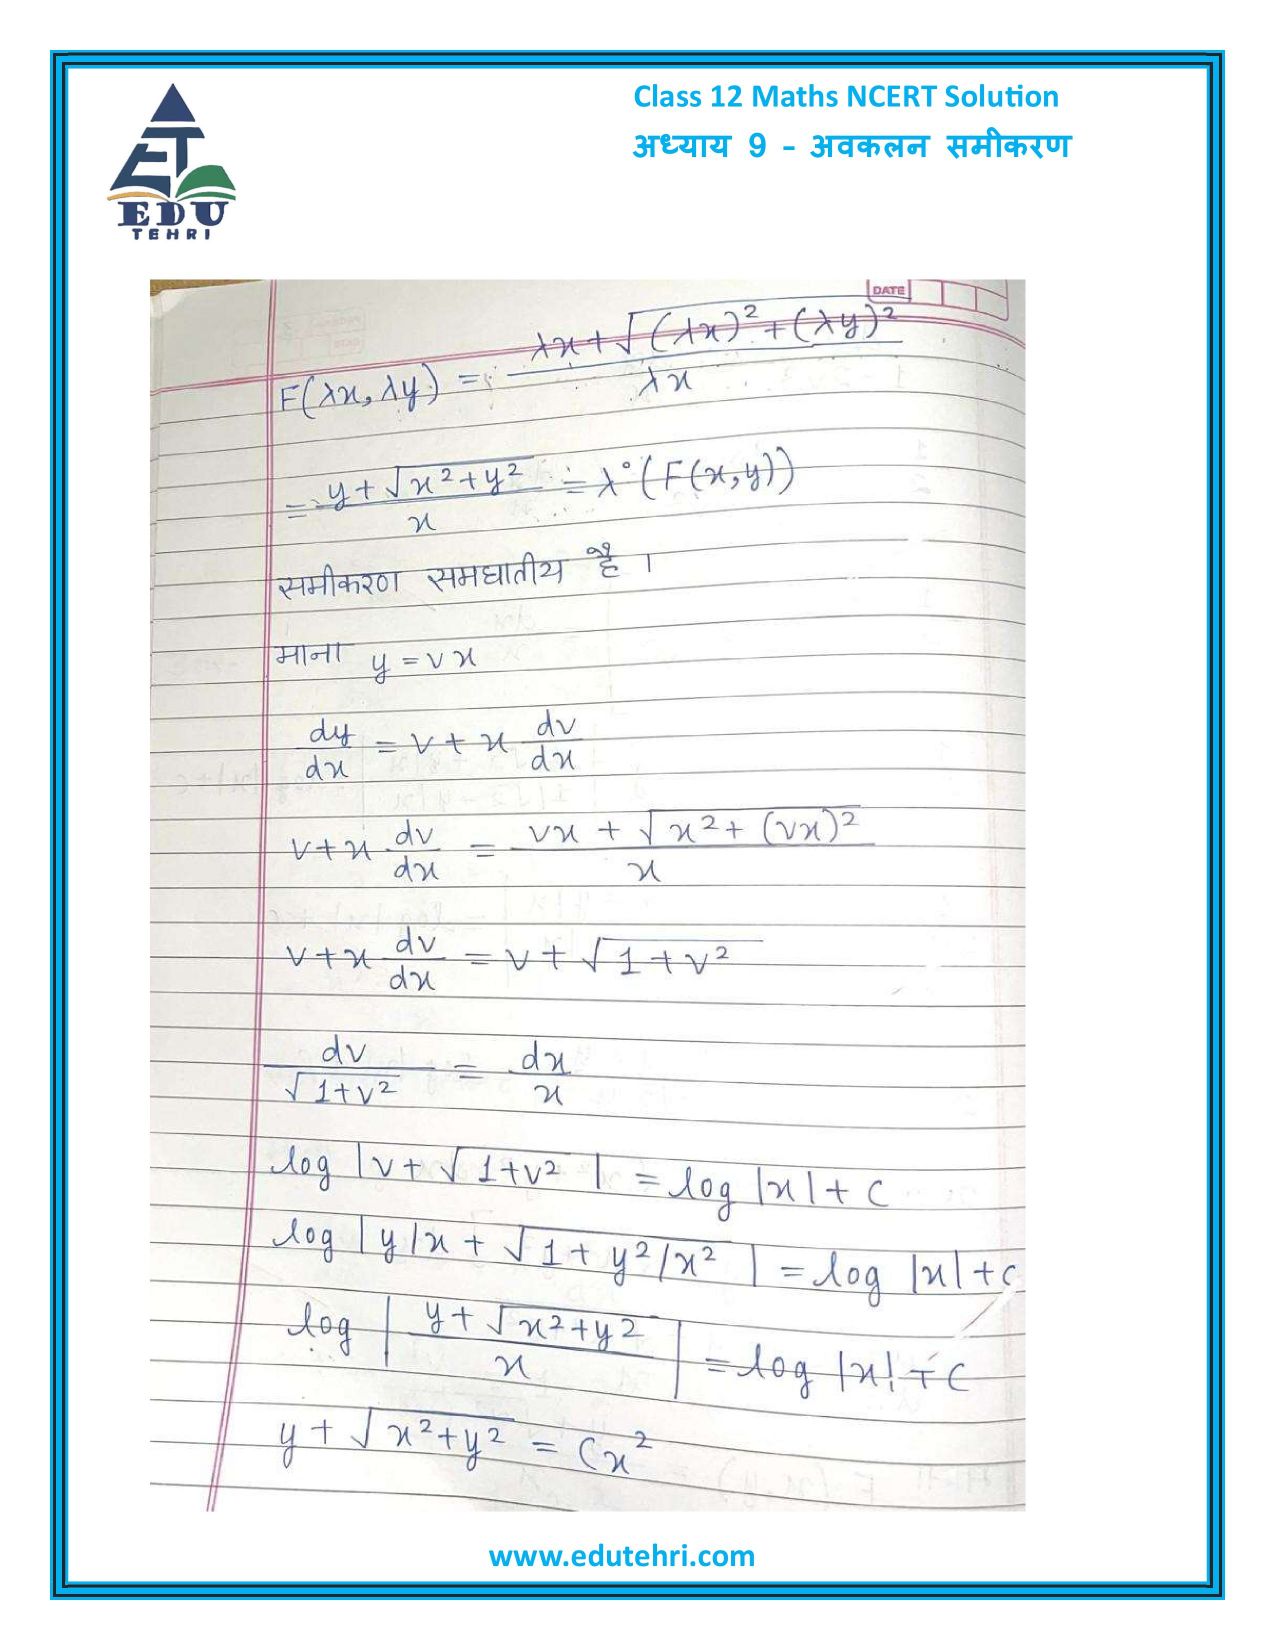 Class 12 Maths NCERT Solution
अध्याय 9 - अवकलन समीकरण
EDU
TEHRI
DATE
F(λx, λy) = λx + √((λx)² + (λy)²) / λx
= y + √(x² + y²) / x = λ°(F(x,y))
समीकरण समघातीय है ।
माना y = vx
dy/dx = v + x dv/dx
v + x dv/dx = vx + √(x² + (vx)²) / x
v + x dv/dx = v + √(1 + v²)
dv/√(1+v²) = dx/x
log |v + √(1+v²)| = log |x| + c
log |y/x + √(1 + y²/x²)| = log |x| + c
log |y + √(x²+y²) / x| = log |x| + c
y + √(x²+y²) = Cx²
www.edutehri.com